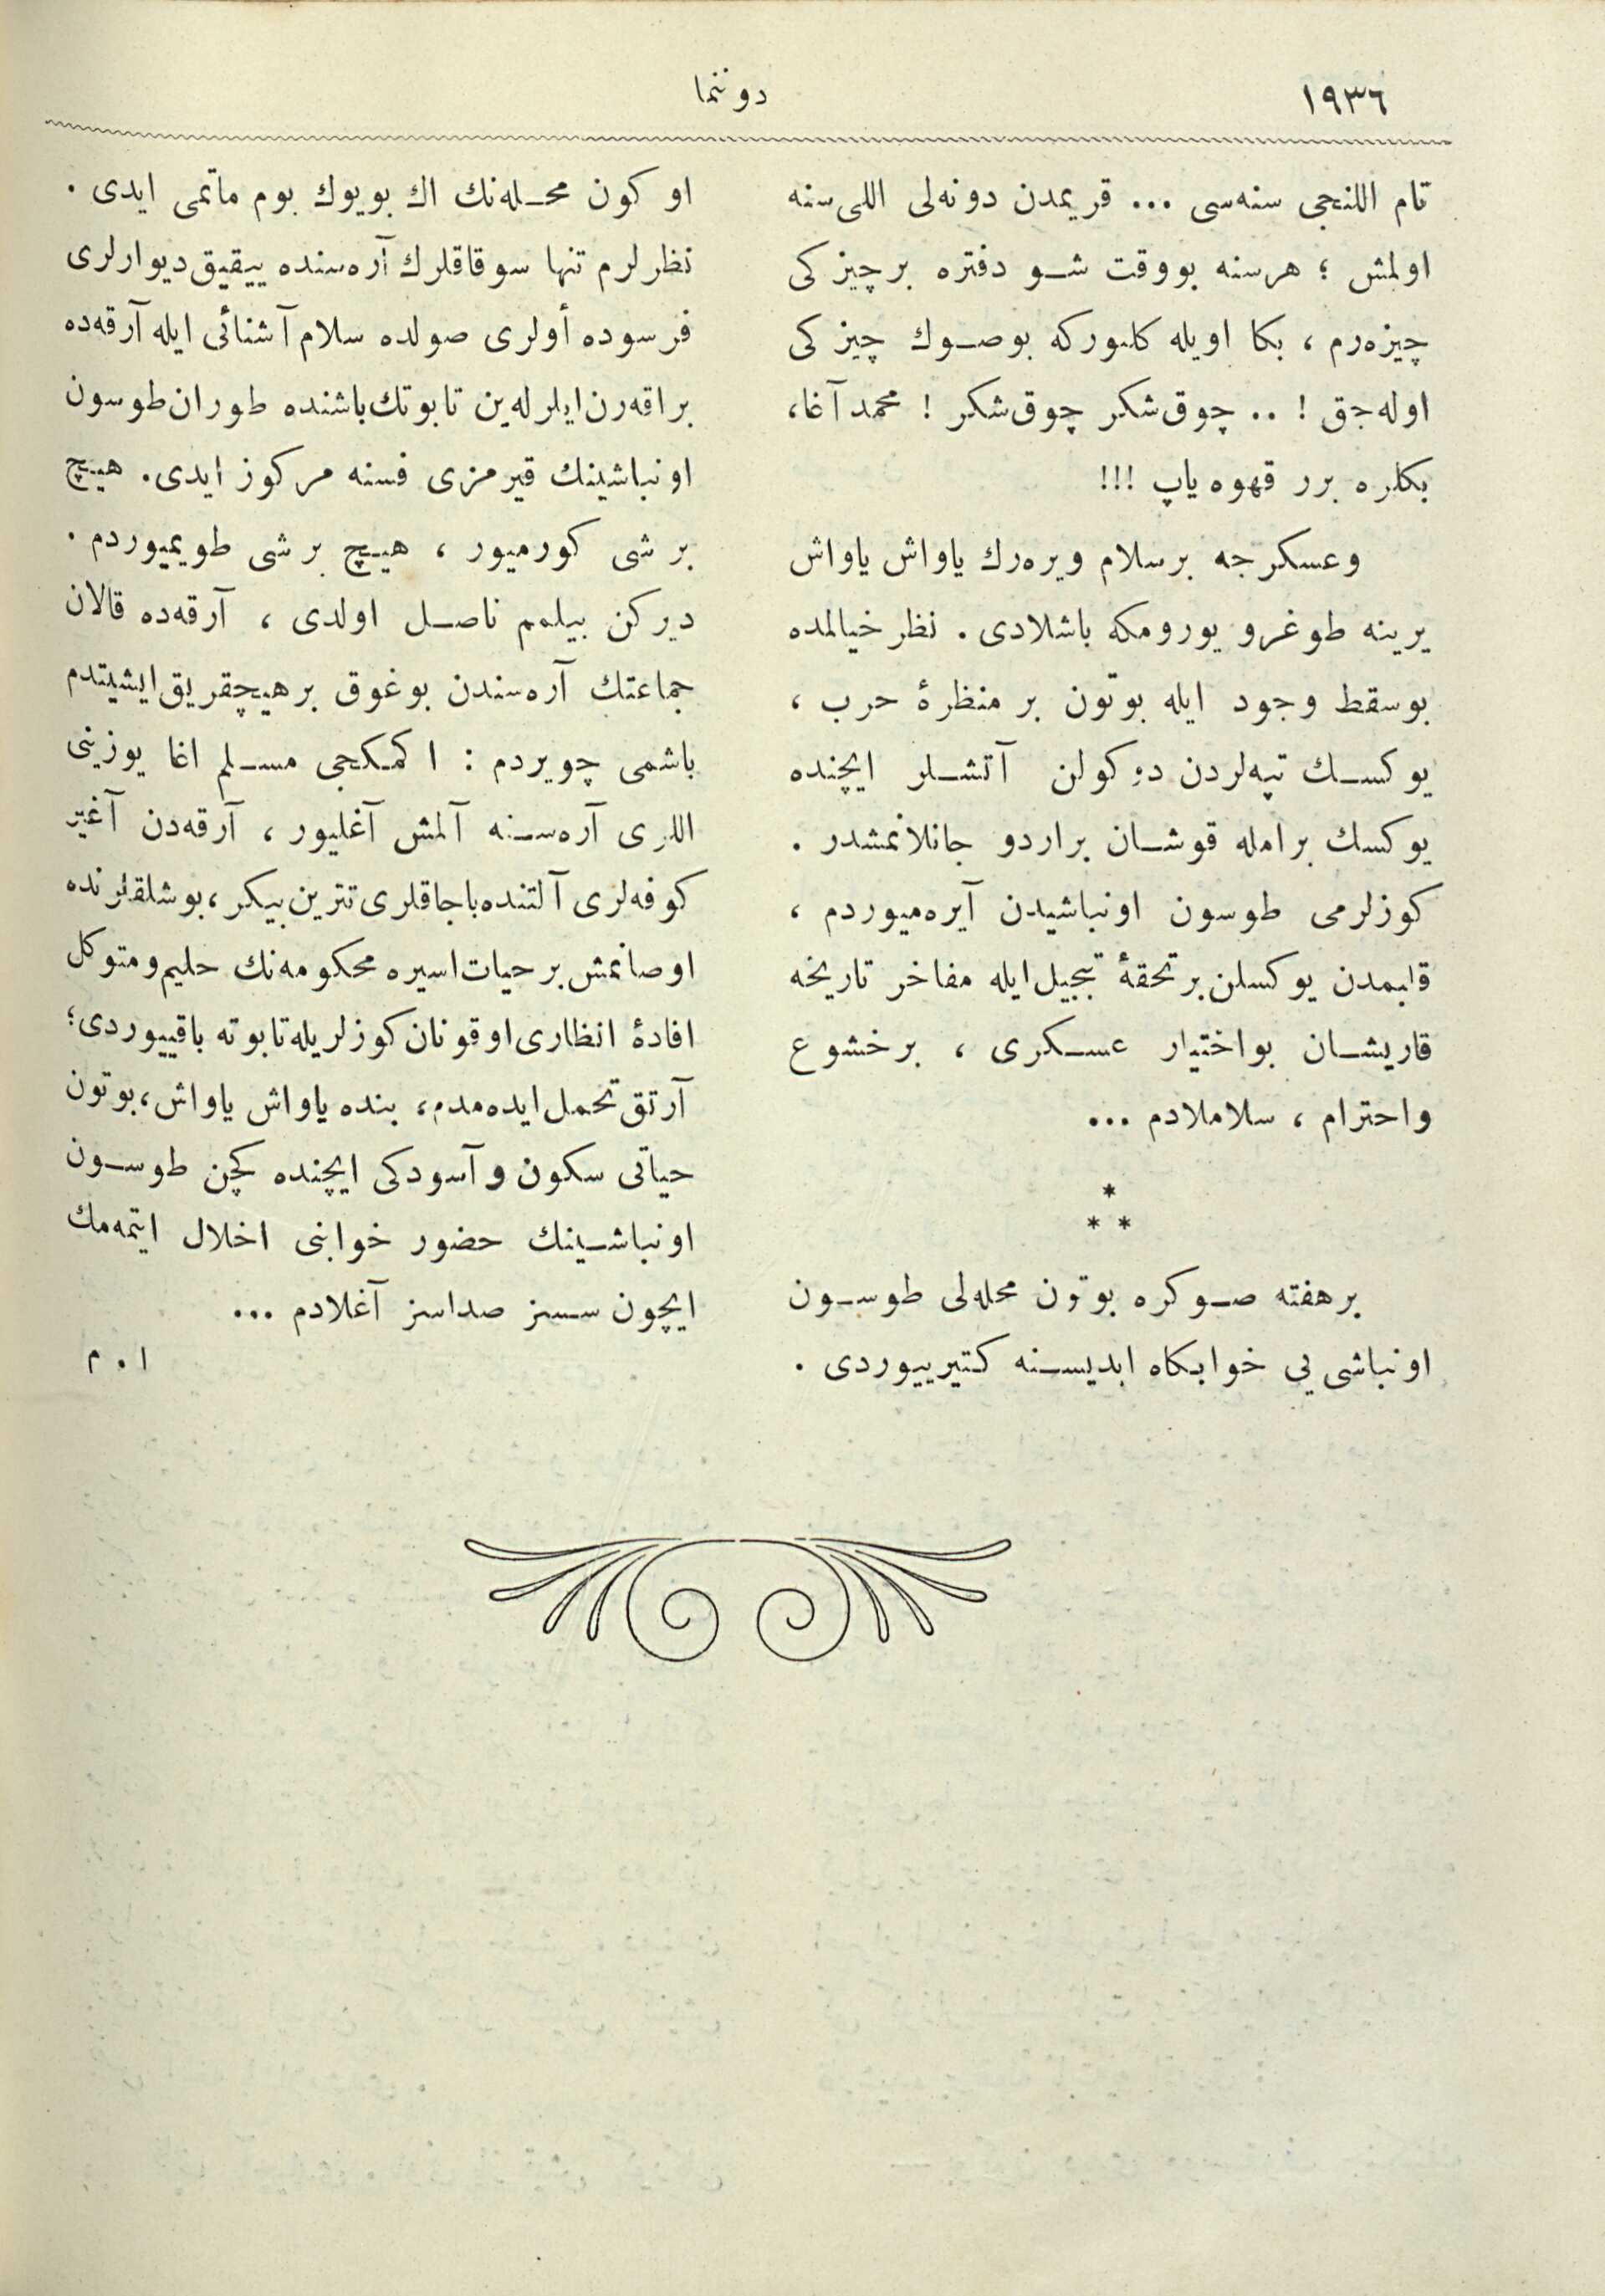 ١٩٣٦
دوننما
تام اللنجی سنه‌سی ... قریمدن دونه‌لی اللی سنه
اولمش ؛ هرسنه بووقت شو دفتره برچیزکی
چیزه‌رم ، بکا اویله کلیورکه بوصوك چیزکی
اوله‌جق ! .. چوق شکر چوق شکر ! محمد آغا،
بکلره برر قهوه یاپ !!!
وعسکرجه برسلام ویره‌رك یاواش یاواش
یرینه طوغرو یورومکه باشلادی . نظر خیالمده
بوسقط وجود ایله بوتون بر منظرۀ حرب ،
یوکسك تپه‌لردن دوکولن آتشلر ایچنده
یوکسك برامله قوشان براردو جانلانمشدر .
کوزلرمی طوسون اونباشیدن آیره‌میوردم ،
قلبمدن یوکسلن برتحفۀ تبجیل ایله مفاخر تاریخه
قاریشان بواختیار عسکری ، برخشوع
واحترام ، سلاملادم ...
*
* *
برهفته صوکره بوتون محله‌لی طوسون
اونباشی یی خوابکاه ابدیسنه کتیرییوردی .
او کون محله‌نك اك بویوك بوم ماتمی ایدی .
نظرلرم تنها سوقاقلرك آره‌سنده ییقیق دیوارلری
فرسوده أولری صولده سلام آشنائی ایله آرقه‌ده
براقه‌رن ایلرله‌ین تابوتك باشنده طوران طوسون
اونباشینك قیرمزی فسنه مرکوز ایدی. هیچ
بر شی کورمیور ، هیچ بر شی طویمیوردم .
دیرکن بیلمم ناصل اولدی ، آرقه‌ده قالان
جماعتك آره‌سندن بوغوق برهیچقریق ایشیتدم
باشمی چویردم : اکمکجی مسلم اغا یوزینی
اللری آره‌سنه آلمش آغلیور ، آرقه‌دن آغیر
کوفه‌لری آلتنده باجاقلری تترین بیکر، بوشلقلرنده
اوصانمش برحیات اسیره محکومه‌نك حلیم ومتوکل
افادۀ انظاری اوقونان کوزلریله تابوته باقییوردی؛
آرتق تحمل ایده‌مدم، بنده یاواش یاواش، بوتون
حیاتی سکون و آسودکی ایچنده کچن طوسون
اونباشینك حضور خوابنی اخلال ایتمه‌مك
ایچون سسز صداسز آغلادم ...
ا . م